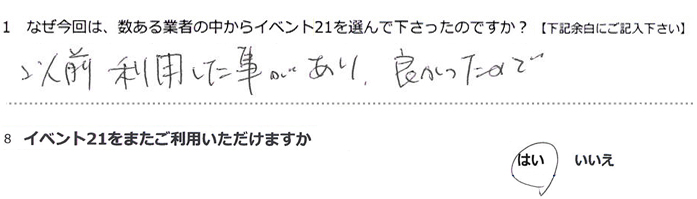 1 なぜ今回は、数ある業者の中からイベント21を選んで下さったのですか？【下記余白にご記入下さい】
以前利用した事があり、良かったので
8 イベント21をまたご利用いただけますか
はい いいえ